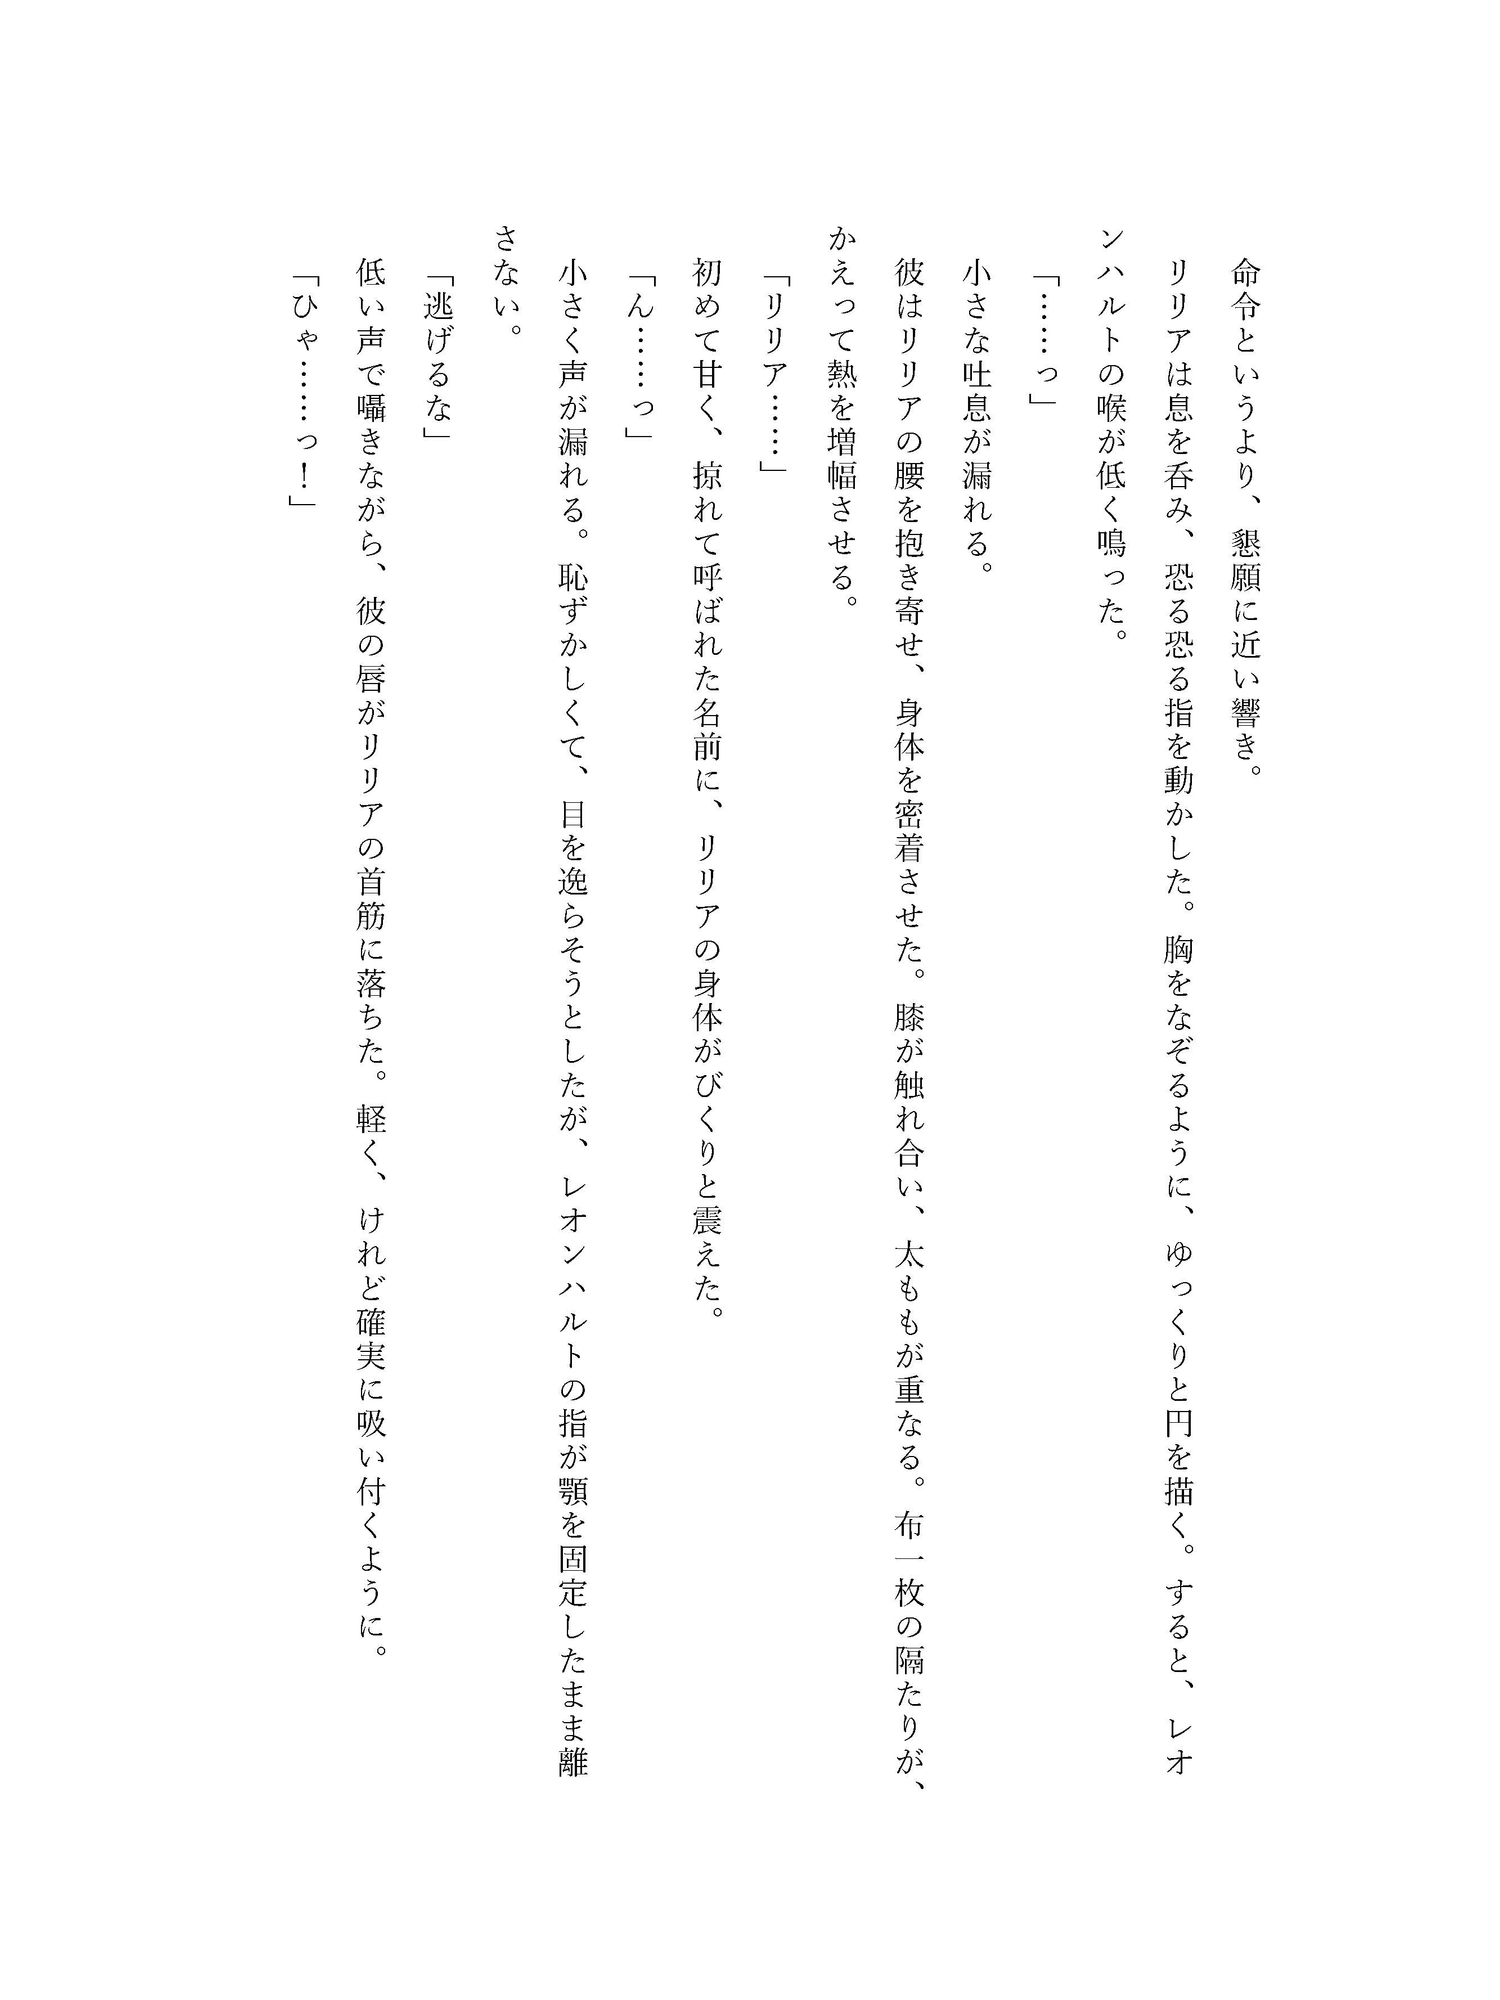 命令というより、懇願に近い響き。
リリアは息を呑み、恐る恐る指を動かした。胸をなぞるように、ゆっくりと円を描く。すると、レオ
ンハルトの喉が低く鳴った。
「……っ」
小さな吐息が漏れる。
彼はリリアの腰を抱き寄せ、身体を密着させた。膝が触れ合い、太ももが重なる。布一枚の隔たりが、
かえって熱を増幅させる。
「リリア……」
初めて甘く、掠れて呼ばれた名前に、リリアの身体がびくりと震えた。
「ん……っ」
小さく声が漏れる。恥ずかしくて、目を逸らそうとしたが、レオンハルトの指が顎を固定したまま離
さない。
「逃げるな」
低い声で囁きながら、彼の唇がリリアの首筋に落ちた。軽く、けれど確実に吸い付くように。
「ひゃ……っ！」